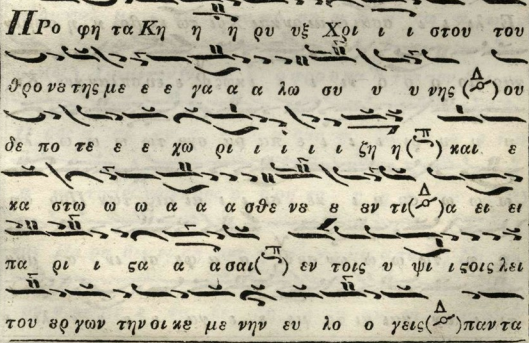 ΠΡο φη τα Κη η ή ρυ υξ Χρι ι ι στου του
θρο νȣ της με ε ε γα α α λω συ υ υ νης (Δ) ου
δε πο τε ε ε χω ρι ι ι ι ι ζη η (π) και ε
κα στω ω ω α α α σθε νȣ ȣ ȣν τι (Δ) α ει ει
πα ρι ι ϛα α α σαι (π) εν τοις υ ψι ι ϛοις λει
του ȣρ γων την οι κȣ με νην ευ λο ο γεις (Δ) παν τα